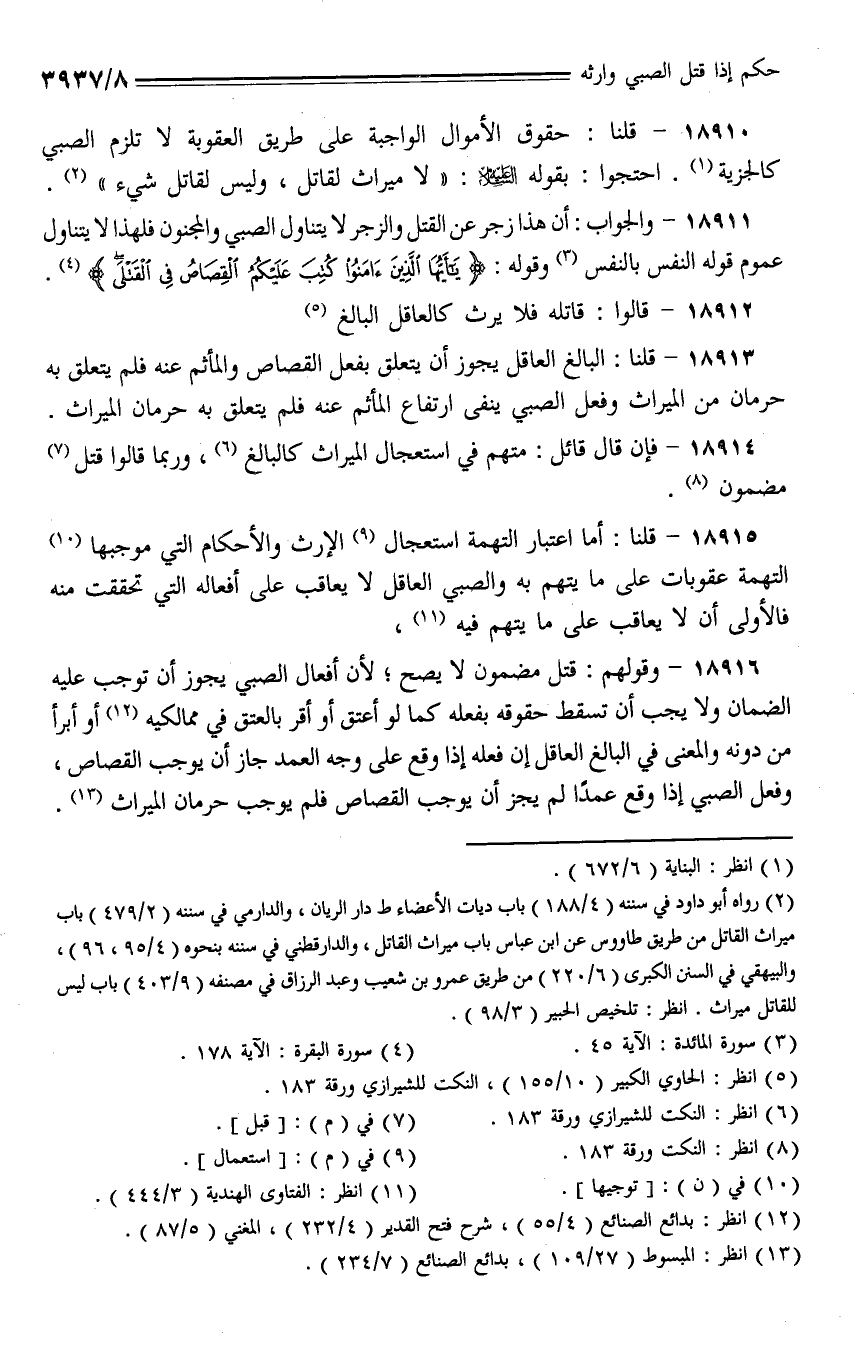 حكم إذا قتل الصبي وارثه ٣٩٣٧/٨
١٨٩١٠ – قلنا : حقوق الأموال الواجبة على طريق العقوبة لا تلزم الصبي
كالجزية (١) . احتجوا : بقوله ﷺ : « لا ميراث لقاتل ، وليس لقاتل شيء » (٢) .
١٨٩١١ – والجواب : أن هذا زجر عن القتل والزجر لا يتناول الصبي والمجنون فلهذا لا يتناول
عموم قوله النفس بالنفس (٣) وقوله : ﴿ يَٰٓأَيُّهَا ٱلَّذِينَ ءَامَنُوا۟ كُتِبَ عَلَيْكُمُ ٱلْقِصَاصُ فِى ٱلْقَتْلَىۖ ﴾ (٤) .
١٨٩١٢ – قالوا : قاتله فلا يرث كالعاقل البالغ (٥)
١٨٩١٣ – قلنا : البالغ العاقل يجوز أن يتعلق بفعل القصاص والمأثم عنه فلم يتعلق به
حرمان من الميراث وفعل الصبي ينفى ارتفاع المأثم عنه فلم يتعلق به حرمان الميراث .
١٨٩١٤ – فإن قال قائل : متهم في استعجال الميراث كالبالغ (٦) ، وربما قالوا قتل (٧)
مضمون (٨) .
١٨٩١٥ – قلنا : أما اعتبار التهمة استعجال (٩) الإرث والأحكام التي موجبها (١٠)
التهمة عقوبات على ما يتهم به والصبي العاقل لا يعاقب على أفعاله التي تحققت منه
فالأولى أن لا يعاقب على ما يتهم فيه (١١) ،
١٨٩١٦ – وقولهم : قتل مضمون لا يصح ؛ لأن أفعال الصبي يجوز أن توجب عليه
الضمان ولا يجب أن تسقط حقوقه بفعله كما لو أعتق أو أقر بالعتق في ممالكيه (١٢) أو أبرأ
من دونه والمعنى في البالغ العاقل إن فعله إذا وقع على وجه العمد جاز أن يوجب القصاص ،
وفعل الصبي إذا وقع عمدًا لم يجز أن يوجب القصاص فلم يوجب حرمان الميراث (١٣) .
(١) انظر : البناية ( ٦٧٢/٦ ) .
(٢) رواه أبو داود في سننه ( ١٨٨/٤ ) باب ديات الأعضاء ط دار الريان ، والدارمي في سننه ( ٤٧٩/٢ ) باب
ميراث القاتل من طريق طاووس عن ابن عباس باب ميراث القاتل ، والدارقطني في سننه بنحوه ( ٩٥/٤ ، ٩٦ ) ،
والبيهقي في السنن الكبرى ( ٢٢٠/٦ ) من طريق عمرو بن شعيب وعبد الرزاق في مصنفه ( ٤٠٣/٩ ) باب ليس
للقاتل ميراث . انظر : تلخيص الحبير ( ٩٨/٣ ) .
(٣) سورة المائدة : الآية ٤٥ . (٤) سورة البقرة : الآية ١٧٨ .
(٥) انظر : الحاوي الكبير ( ١٥٥/١٠ ) ، النكت للشيرازي ورقة ١٨٣ .
(٦) انظر : النكت للشيرازي ورقة ١٨٣ . (٧) في ( م ) : [ قبل ] .
(٨) انظر : النكت ورقة ١٨٣ . (٩) في ( م ) : [ استعمال ] .
(١٠) في ( ن ) : [ توجيها ] . (١١) انظر : الفتاوى الهندية ( ٤٤٤/٣ ) .
(١٢) انظر : بدائع الصنائع ( ٥٥/٤ ) ، شرح فتح القدير ( ٢٣٢/٤ ) ، المغني ( ٨٧/٥ ) .
(١٣) انظر : المبسوط ( ١٠٩/٢٧ ) ، بدائع الصنائع ( ٢٣٤/٧ ) .